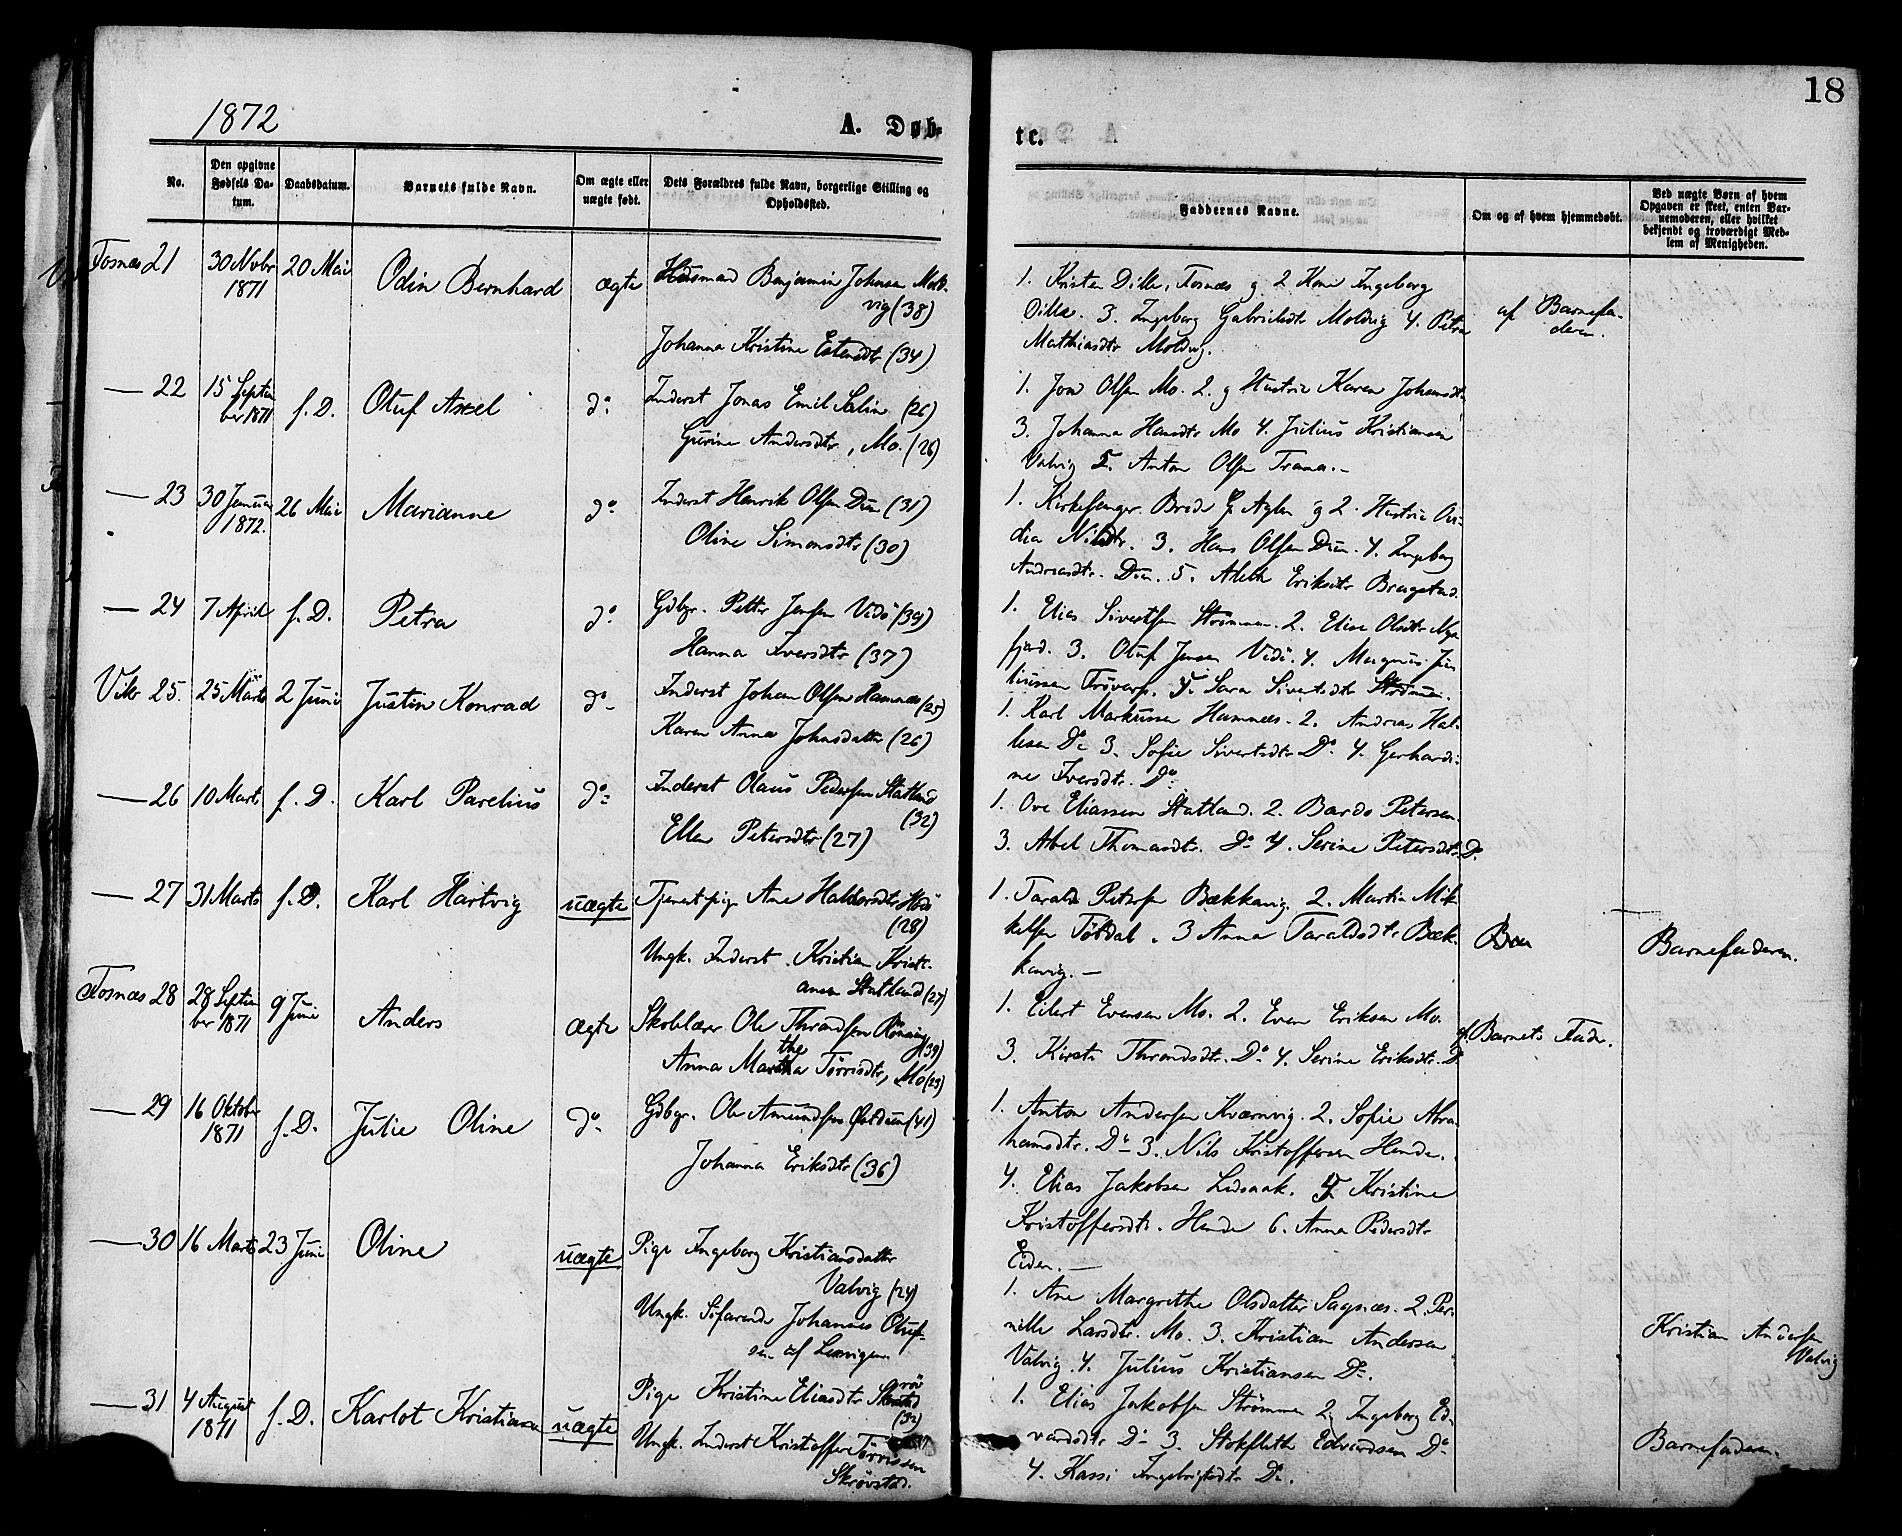 18
1872
A. Døb-
te.
No.
Den opgivne Fødsels Da-tum.
Daabsdatum.
Barnets fulde Navn.
Om ægte eller uægte født.
Dets Forældres fulde Navn, borgerlige Stilling og Opholdssted.
Faddernes Navne.
Om og af hvem hjemmedøbt.
Ved uægte Børn af hvem Opgaven er skeet, enten Bar-nemoderen, eller hvilket bekjendt og troværdigt Med-lem af Menigheden.
Fosnæs 21
30 Novbr 1871
20 Mai
Odin Bernhard
ægte
Husmand Benjamin Johnsen Mold-
vig (38)
Johanna Kristine Estensdtr (34)
1. Kristen Dille, Fosnæs g 2 Kone Ingeborg
Dille. 3. Ingeborg Gabrielsdtr Moldvig 4. Petra
Mathiasdtr Moldvig.
af Barnefa-
deren
— 22
15 Septem
ber 1871
f. D.
Oluf Axel
do
Inderst Jonas Emil Salin (26)
Gurine Andersdtr, Mo. (26)
1. Jon Olsen Mo. 2. g Hustru Karen Johansdtr
3. Johanna Hansdtr Mo 4. Julius Kristiansen
Valvig 5. Anton Olsen Trana.—
— 23
30 Januar
1872.
26 Mai
Marianne
do
Inderst Henrik Olsen Dun (31)
Oline Simonsdtr (30)
1. Kirkesanger Brede E. Aglen g 2. Hustru Ovi-
dia Nilsdtr. 3. Hans Olsen Dun. 4. Ingeborg
Andreasdtr. Dun. 5. Aleth Eriksdtr Bragstad.
— 24
7 April
f. D.
Petra
do
Gdbgr. Petter Jensen Vidø (39)
Hanna Iversdtr (37)
1. Elias Sivertsen Strømmen. 2. Elise Olsdtr Mye-
fjord. 3. Oluf Jensen Vidø. 4. Magnus Ju-
liussen 5. Sara Sivertsdtr Strømmen.
Vikr 25.
25 Marts
2 Juni
Justin Konrad
do
Inderst Johan Olsen Hamnæs (25)
Karen Anna Johnsdatter (26)
1. Karl Markussen Hamnæs. 2. Andreas Hal-
lesen Do 3. Sofie Sivertsdtr Do. 4. Gerhardi-
ne Iversdtr. Do
— 26
10 Marts
f. D.
Karl Parelius
do
Inderst Olaus Pedersen Statland
(32)
Ellen Petersdtr (27)
1. Ove Eliassen Statland. 2. Bardo Petersen.
3. Abel Thomasdtr. Do 4. Serine Petersdtr Do.
— 27
31 Marts
f. D.
Karl Hartvig
uægte
Tjenestpige Ane Haldorsdtr
(28)
Ungk. Inderst Kristian Kristi-
ansen Statland (27)
1. Tarald Petersen Bækkavig. 2. Martin Mik-
kelsen Tøtdal. 3 Anna Taraldsdtr Bæk-
kavig. —
Barnefaderen.
Fosnæs 28
28 Septem
ber 1871
9 Juni
Anders
ægte
Skolelærer Ole Thrandsen Rønning
(39)
Anna Marthe Tørrisdtr, Mo (23)
1. Eilert Evensen Mo. 2. Even Eriksen Mo.
3. Kirsti Thrandsdtr. Do 4. Serine Eriksdtr. Do
af Barnets Fader.
— 29
16 Oktober
1871
f. D.
Julie Oline
do
Gdbgr. Ole Amundsen (41)
Johanna Eriksdtr (36)
1. Anton Andersen Kværnvig. 2. Sofie Abra-
hamsdtr. Do 3. Nils Kristoffersen Hende.
4. Elias Jakobsen 5. Kristine
Kristoffersdtr. Hende 6. Anna Pedersdtr
Eiden. —
— 30
16 Marts
23 Juni
Oline
uægte
Pige Ingeborg Kristiansdatter
Valvig (24)
Ungk. Søfarende Johannes Oluf-
sen af Lemvigen
1. Ane Margrethe Olsdatter Sagnæs. 2. Per-
nille Larsdtr. Mo. 3. Kristian Andersen
Valvig. 4. Julius Kristiansen Do.
Kristian Andersen
Valvig
— 31
4 August
1871
f. D.
Karlot Kristiane
uægte
Pige Kristine Eliasdtr Skrøvstad
(32)
Ungk. Inderst Kristoffer Tørrissen
Skrøvstad.
1. Elias Jakobsen Strømmen 2. Ingeborg Ed-
vardsdtr Do 3. Stokfleth Edvardsen Do
4. Kassi Ingebrigtsdtr Do.
Barnefaderen.